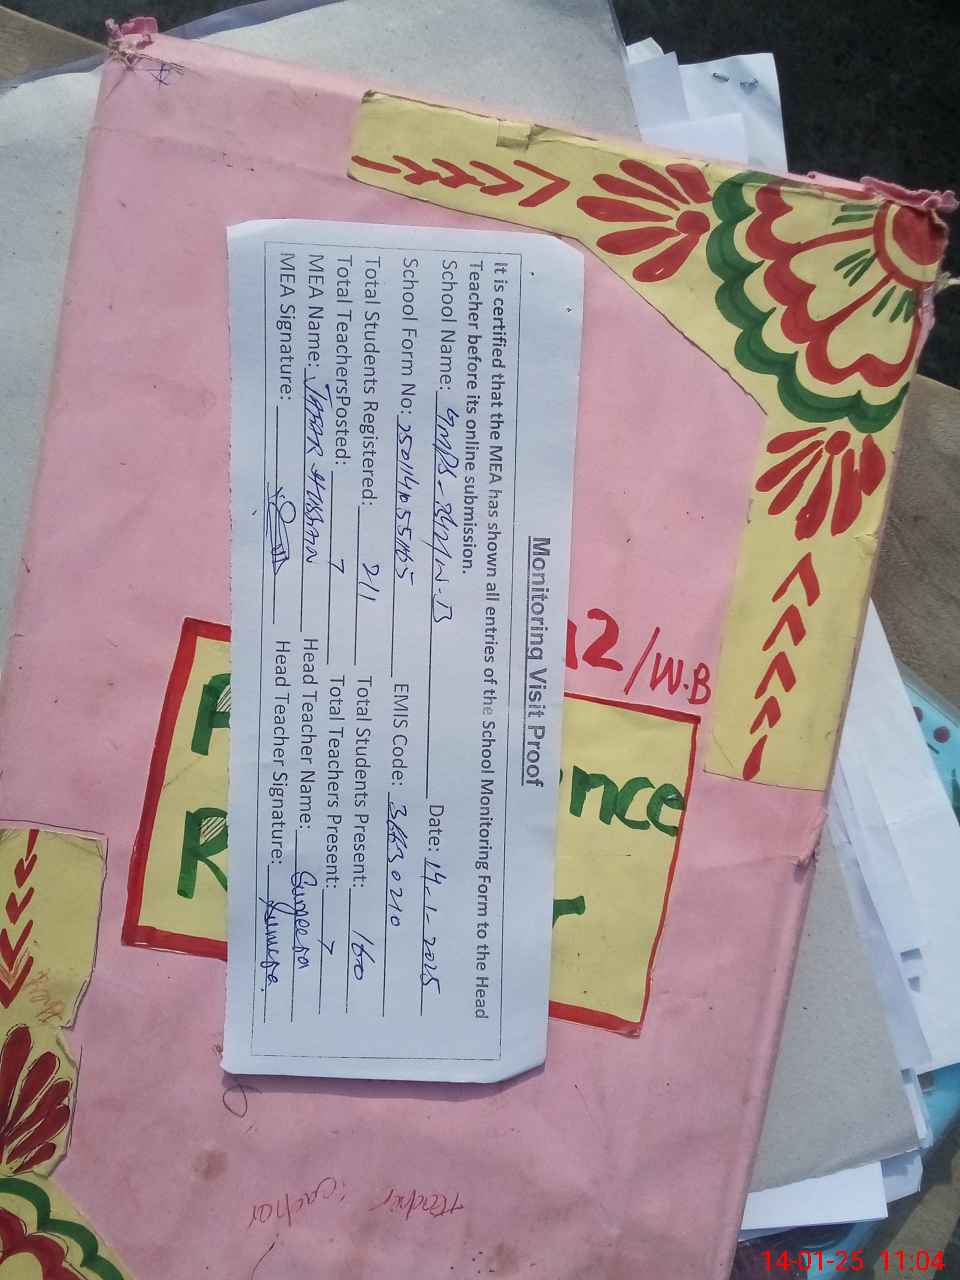 Monitoring Visit Proof
It is certified that the MEA has shown all entries of the School Monitoring Form to the Head
Teacher before its online submission.
School Name: Date: 14-1-2025
School Form No: EMIS Code:
Total Students Registered: 211 Total Students Present: 160
Total TeachersPosted: 7 Total Teachers Present: 7
MEA Name: JAFAR HUSSAIN Head Teacher Name: Sumeera
MEA Signature: Head Teacher Signature: Sumera
2/W.B
nce
R
Teacher
14-01-25 11:04